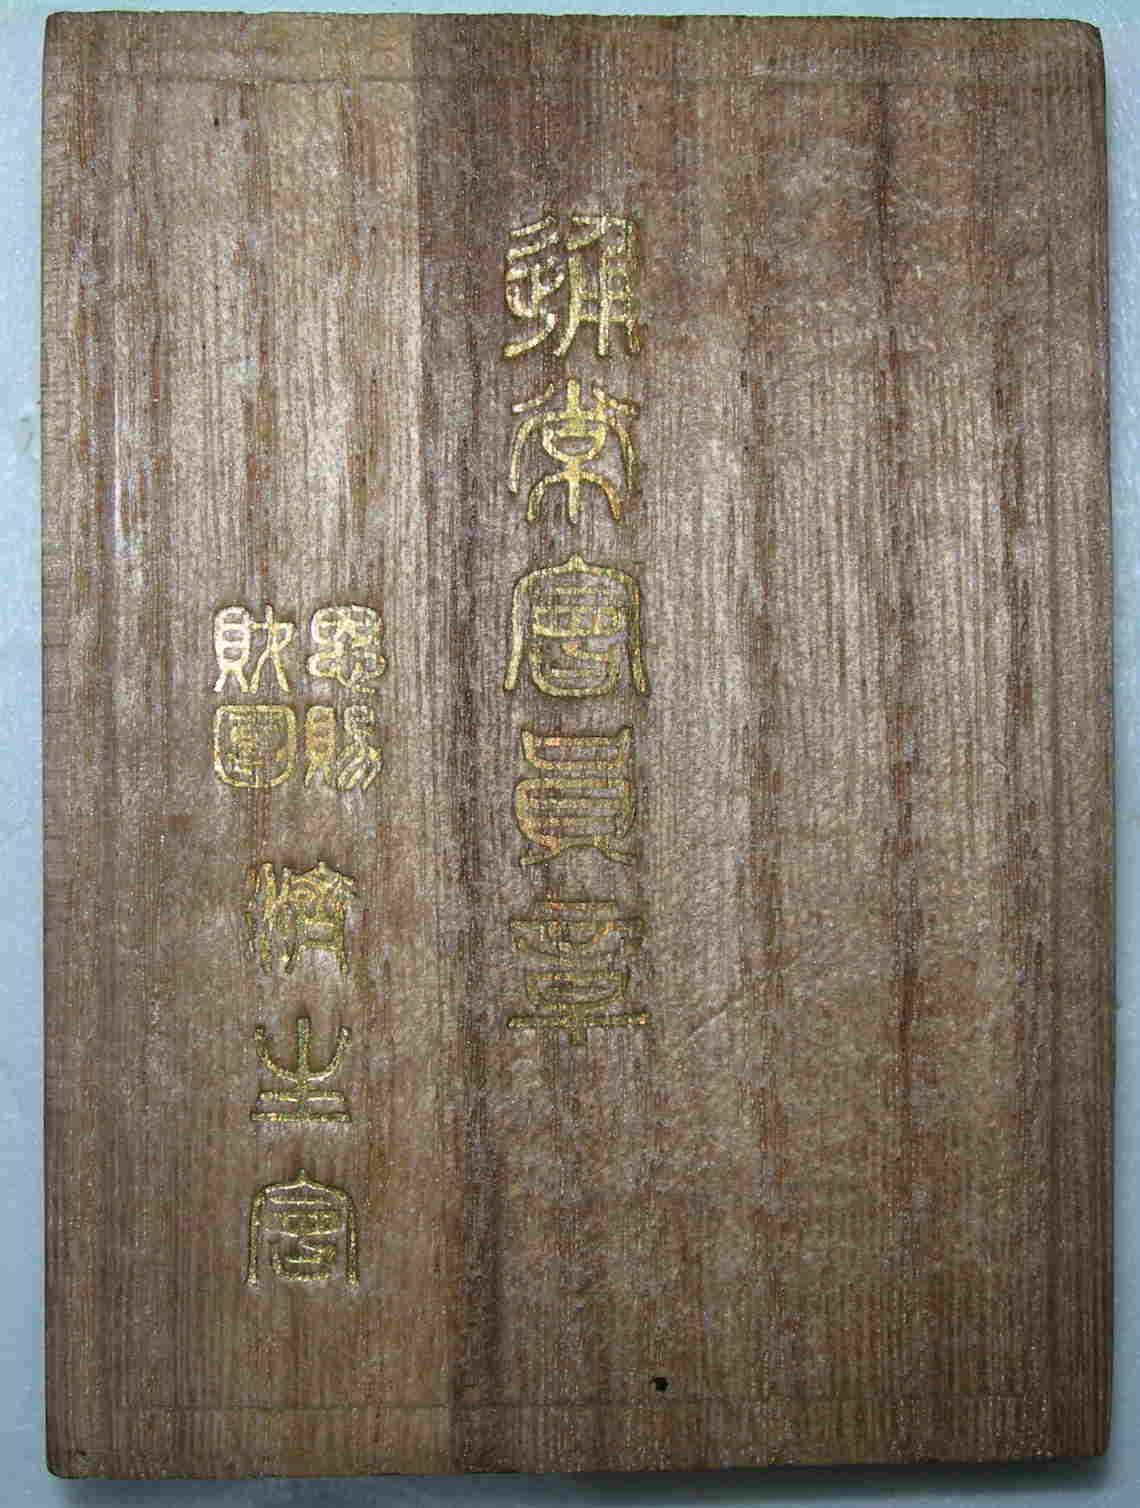 通常會員章
恩賜
財團
濟生會